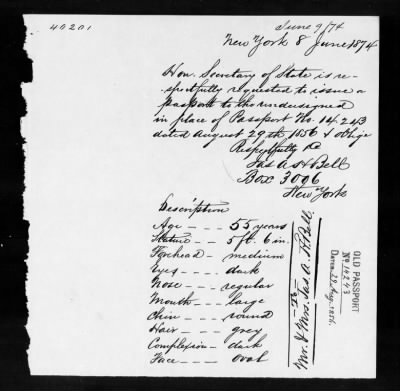 40201
June 9/74
New York 8 June 1874
Hon. Secretary of State is re-
spectfully requested to issue a
passport to the undersigned
in place of Passport No. 14,243
dated August 29th 1856 & oblige
Respectfully &c
Jas A H Bell
Box 3006
New York
Description
Age - - - 55 years
Stature - - 5 ft. 6 in.
Forehead - medium
Eyes - - - dark
Nose - - - regular
Mouth - - large
Chin - - - round
Hair - - - grey
Complexion - dark
Face - - - oval
To
Mr. & Mrs. Jas. A. H. Bell.
OLD PASSPORT
No 14243
Dated 29 Aug. 1856.